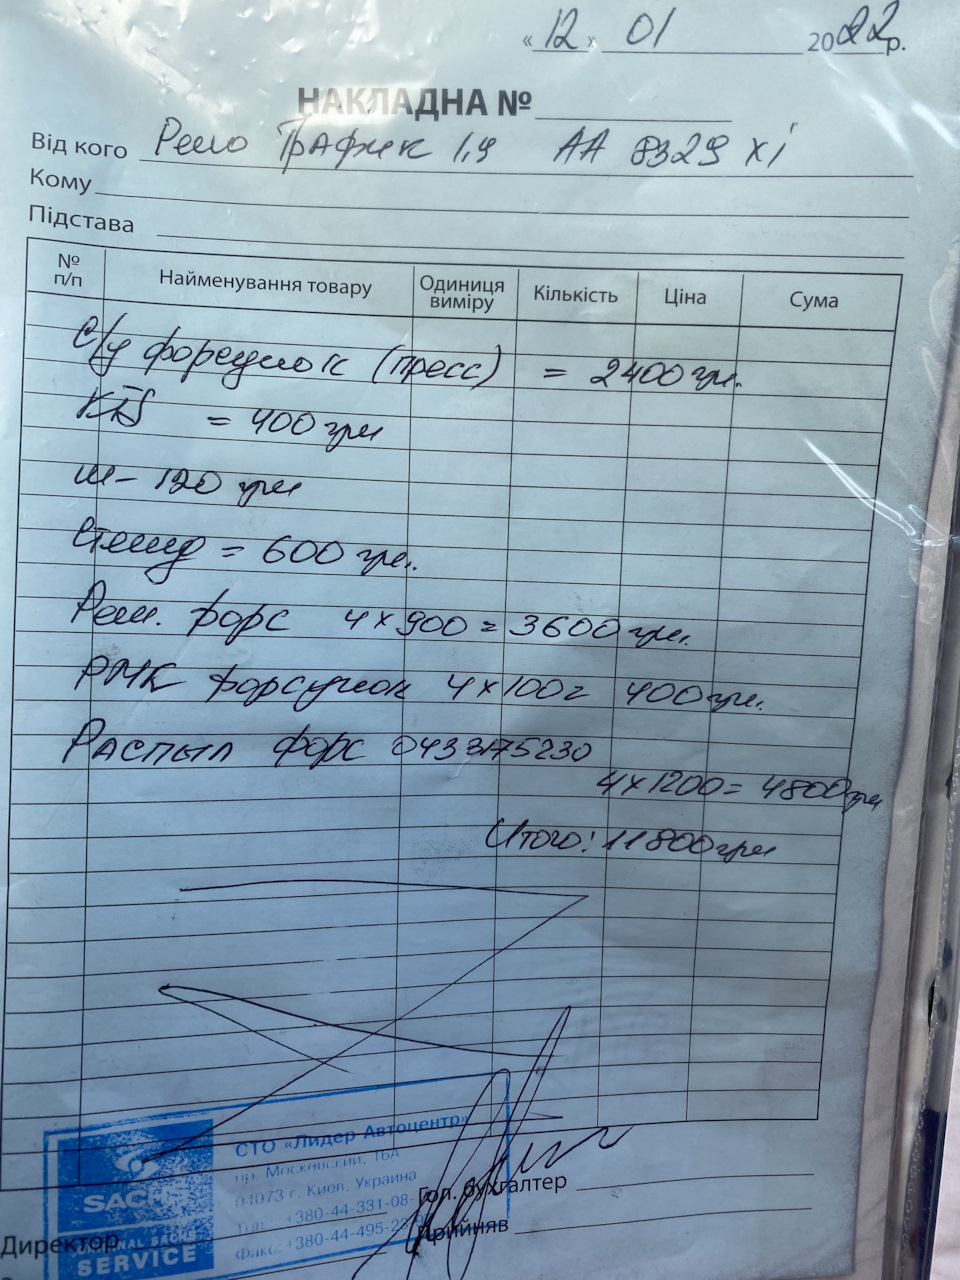 « 12 » 01 2022 р.
НАКЛАДНА №
Від кого Рено Трафик 1,9 АА 8329 ХІ
Кому
Підстава
№ п/п Найменування товару Одиниця виміру Кількість Ціна Сума
С/у форсунок (пресс) = 2400 грн.
KTS = 400 грн
ш - 120 грн
Стенд = 600 грн.
Рем. форс 4 x 900 = 3600 грн.
РМК форсунок 4 x 100 = 400 грн.
Распыл форс 0433175230
4 x 1200 = 4800 грн
Итого: 11800 грн
СТО «Лидер Автоцентр»
пр. Московский, 16А
04073 г. Киев, Украина
+380-44-331-08-
Факс: +380-44-495-23-
SACHS
SERVICE
Гол. бухгалтер
Директор
Прийняв